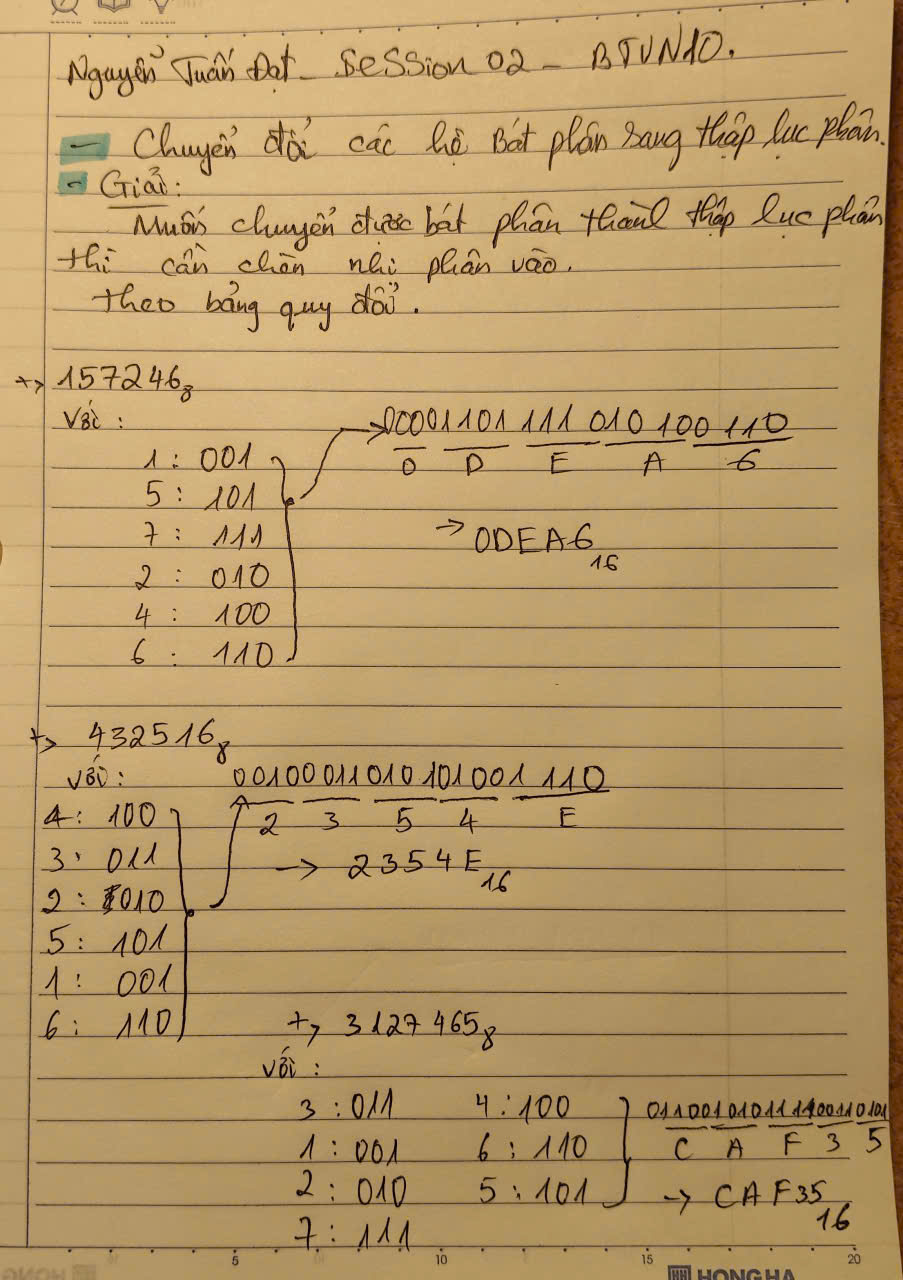 Nguyễn Tuấn Đạt - Session 02 - BTVN10.
- Chuyển đổi các hệ Bát phân sang thập lục phân.
- Giải:
Muốn chuyển được bát phân thành thập lục phân
thì cần chèn nhị phân vào.
theo bảng quy đổi.
+> 157246₈
Với:
00001101 111 010 100 110
0 D E A 6
1 : 001
5 : 101
7 : 111
2 : 010
4 : 100
6 : 110
→ 0DEA6₁₆
+> 432516₈
với:
00100011010101001 110
2 3 5 4 E
→ 2354E₁₆
4: 100
3: 011
2: 010
5: 101
1: 001
6: 110
+> 3127465₈
với:
3 : 011 4 : 100
1 : 001 6 : 110
2 : 010 5 : 101
7 : 111
011001010111100110101
C A F 3 5
→ CAF35₁₆
5 10 15 20
HONG HA